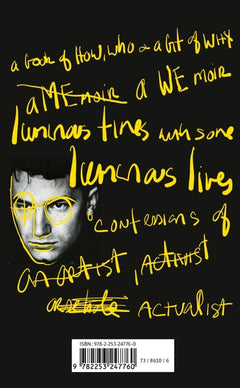 a book of HOW, WHO & a bit of WHY
a MEmoir a WE moir
luminous times with some
luminous lives
confessions of
an artist, activist
asshole ACTUALIST
ISBN : 978-2-253-24776-0
73 / 8610 / 6
9 782253 247760